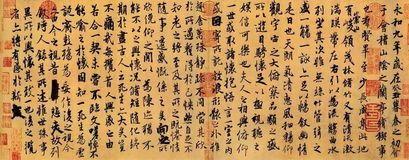 永和九年歲在癸丑暮春之初會
于會稽山陰之蘭亭脩稧事
也群賢畢至少長咸集此地
有崇山峻領茂林脩竹又有清流激
湍暎帶左右引以為流觴曲水
列坐其次雖無絲竹管弦之
盛一觴一詠亦足以暢敘幽情
是日也天朗氣清惠風和暢仰
觀宇宙之大俯察品類之盛
所以遊目騁懷足以極視聽之
娛信可樂也夫人之相與俯仰
一世或取諸懷抱悟言一室之內
或因寄所託放浪形骸之外雖
趣舍萬殊靜躁不同當其欣
於所遇蹔得於己怏然自足不
知老之將至及其所之既惓情
隨事遷感慨係之矣向之所
欣俛仰之閒以為陳迹猶不
能不以之興懷況脩短隨化終
期於盡古人云死生亦大矣豈
不痛哉每攬昔人興感之由
若合一契未嘗不臨文嗟悼不
能喻之於懷固知一死生為虛
誕齊彭殤為妄作後之視今
亦由今之視昔悲夫故列
敘時人錄其所述雖世殊事
異所以興懷其致一也後之攬
者亦將有感於斯